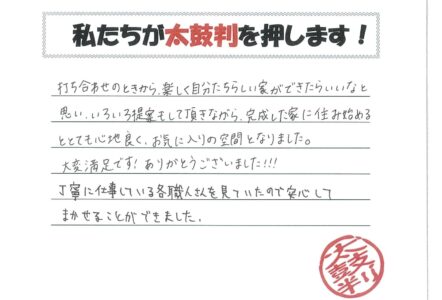 私たちが太鼓判を押します！
打ち合わせのときから、楽しく自分たちらしい家ができたらいいなと
思い、いろいろ提案もして頂きながら、完成した家に住み始める
ととても心地良く、お気に入りの空間となりました。
大変満足です！ありがとうございました!!!
丁寧に仕事している各職人さんを見ていたので安心して
まかせることができました。
太鼓判